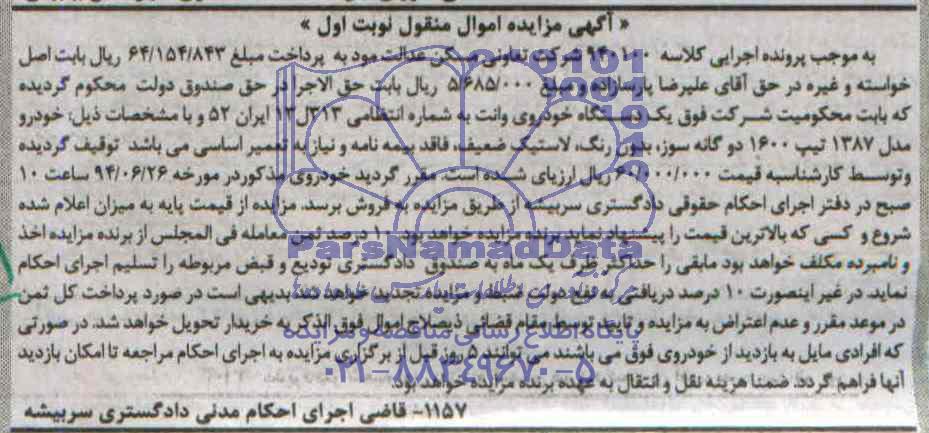 « آگهی مزایده اموال منقول نوبت اول »
به موجب پرونده اجرایی کلاسه ۹۴۰۱۰۰ شرکت تعاونی مسکن عدالت مود به پرداخت مبلغ ۶۴/۱۵۴/۸۴۳ ریال بابت اصل
خواسته و غیره در حق آقای علیرضا پارسازاده و مبلغ ۵/۶۸۵/۰۰۰ ریال بابت حق الاجرا در حق صندوق دولت محکوم گردیده
که بابت محکومیت شرکت فوق یک دستگاه خودروی وانت به شماره انتظامی ۳۱۳ل۱۲ ایران ۵۲ و با مشخصات ذیل: خودرو
مدل ۱۳۸۷ تیپ ۱۶۰۰ دو گانه سوز، بدون رنگ، لاستیک ضعیف، فاقد بیمه نامه و نیاز به تعمیر اساسی می باشد توقیف گردیده
وتوسط کارشناسبه قیمت ۶۰/۰۰۰/۰۰۰ ریال ارزیابی شده است. مقرر گردید خودروی مذکوردر مورخه ۹۴/۰۶/۲۶ ساعت ۱۰
صبح در دفتر اجرای احکام حقوقی دادگستری سربیشه از طریق مزایده به فروش برسد. مزایده از قیمت پایه به میزان اعلام شده
شروع و کسی که بالاترین قیمت را پیشنهاد نماید برنده مزایده خواهد بود. ۱۰ درصد ثمن معامله فی المجلس از برنده مزایده اخذ
و نامبرده مکلف خواهد بود مابقی را حداکثر ظرف یک ماه به صندوق دادگستری تودیع و قبض مربوطه را تسلیم اجرای احکام
نماید. در غیر اینصورت ۱۰ درصد دریافتی به نفع دولت ضبط و مزایده تجدید خواهد شد. بدیهی است در صورد پرداخت کل ثمن
در موعد مقرر و عدم اعتراض به مزایده و تایید توسط مقام قضائی ذیصلاح اموال فوق الذکر به خریدار تحویل خواهد شد. در صورتی
که افرادی مایل به بازدید از خودروی فوق می باشند می توانند ۵ روز قبل از برگزاری مزایده به اجرای احکام مراجعه تا امکان بازدید
آنها فراهم گردد. ضمنا هزینه نقل و انتقال به عهده برنده مزایده خواهد بود.
۱۱۵۷- قاضی اجرای احکام مدنی دادگستری سربیشه
ParsNamadData
پایگاه اطلاع رسانی مناقصه و مزایده
۰۲۱-۸۸۳۴۹۶۷۰-۵